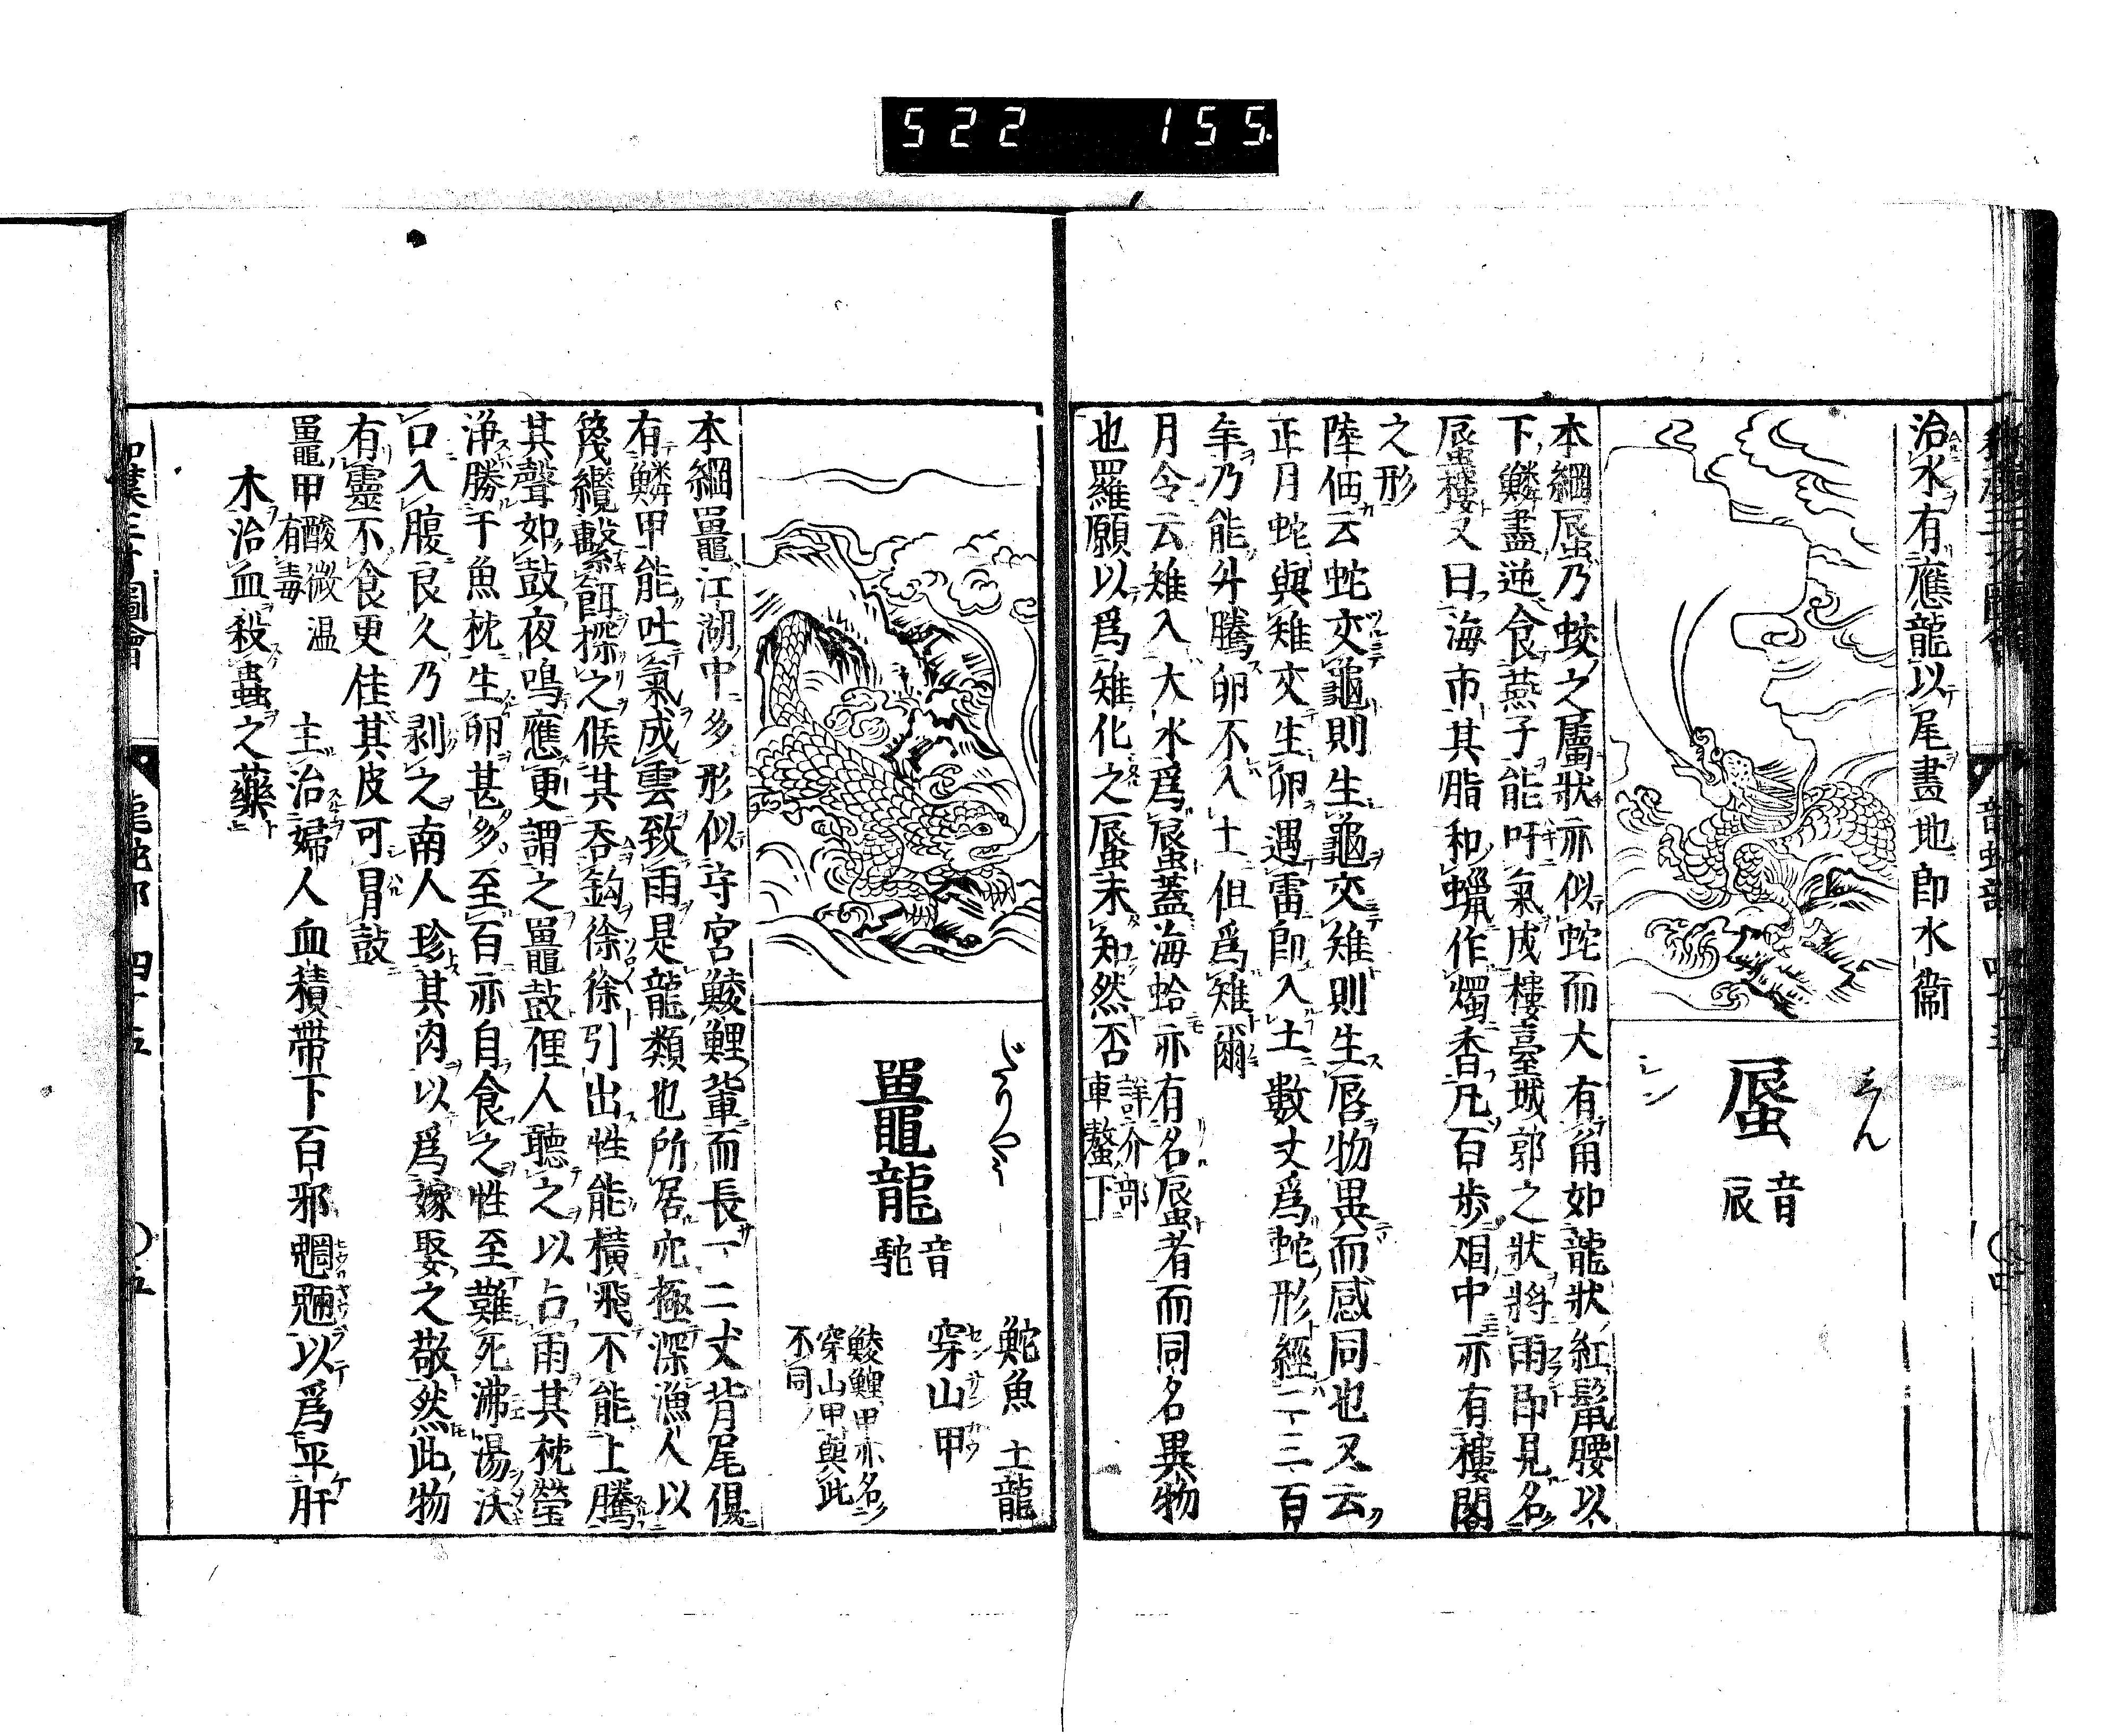 522 155
治水有應龍以尾畫地即水
しん
蜃 音辰
シン
本綱蜃乃蛟之屬狀亦似蛇而大有角如龍狀紅鬣腰以
下鱗盡逆食燕子能吁氣成樓臺城郭之狀將雨即見名
蜃樓又曰海市其脂和蠟作燭香凡百歩烟中亦有樓閣
之形
陸佃云蛇交龜則生龜交雉則生蜃物異而感同也又云
正月蛇與雉交生卵遇雷即入土數丈爲蛇形經二三百
年乃能升騰卵不入土但爲雉爾
月令云雉入大水爲蜃蓋海蛤亦有名蜃者而同名異物
也羅願以爲雉化之蜃未知然否 詳介部車螯下
鼉龍 音駝
鮀魚 土龍
穿山甲
センサンカウ
鯪鯉甲亦名
穿山甲與此
不同
本綱鼉江湖中多形似守宮鯪鯉輩而長一二丈背尾俱
有鱗甲能吐氣成雲致雨是龍類也所居穴極深漁人以
篾纜繫餌探之候其吞鈎徐徐引出性能横飛不能上騰
其聲如鼓夜鳴應更謂之鼉鼓俚人聽之以占雨其枕瑩
浄勝于魚枕生卵甚多至百亦自食之性至難死沸湯沃
口入腹良久乃剥之南人珍其肉以爲嫁娶之敬然此物
有靈不食更佳其皮可冒鼓
鼉甲 酸微温有毒 主治婦人血積帶下百邪魍魎以爲平肝
木治血殺蟲之藥
和漢三才圖會 龍蛇部 四十五 〇五